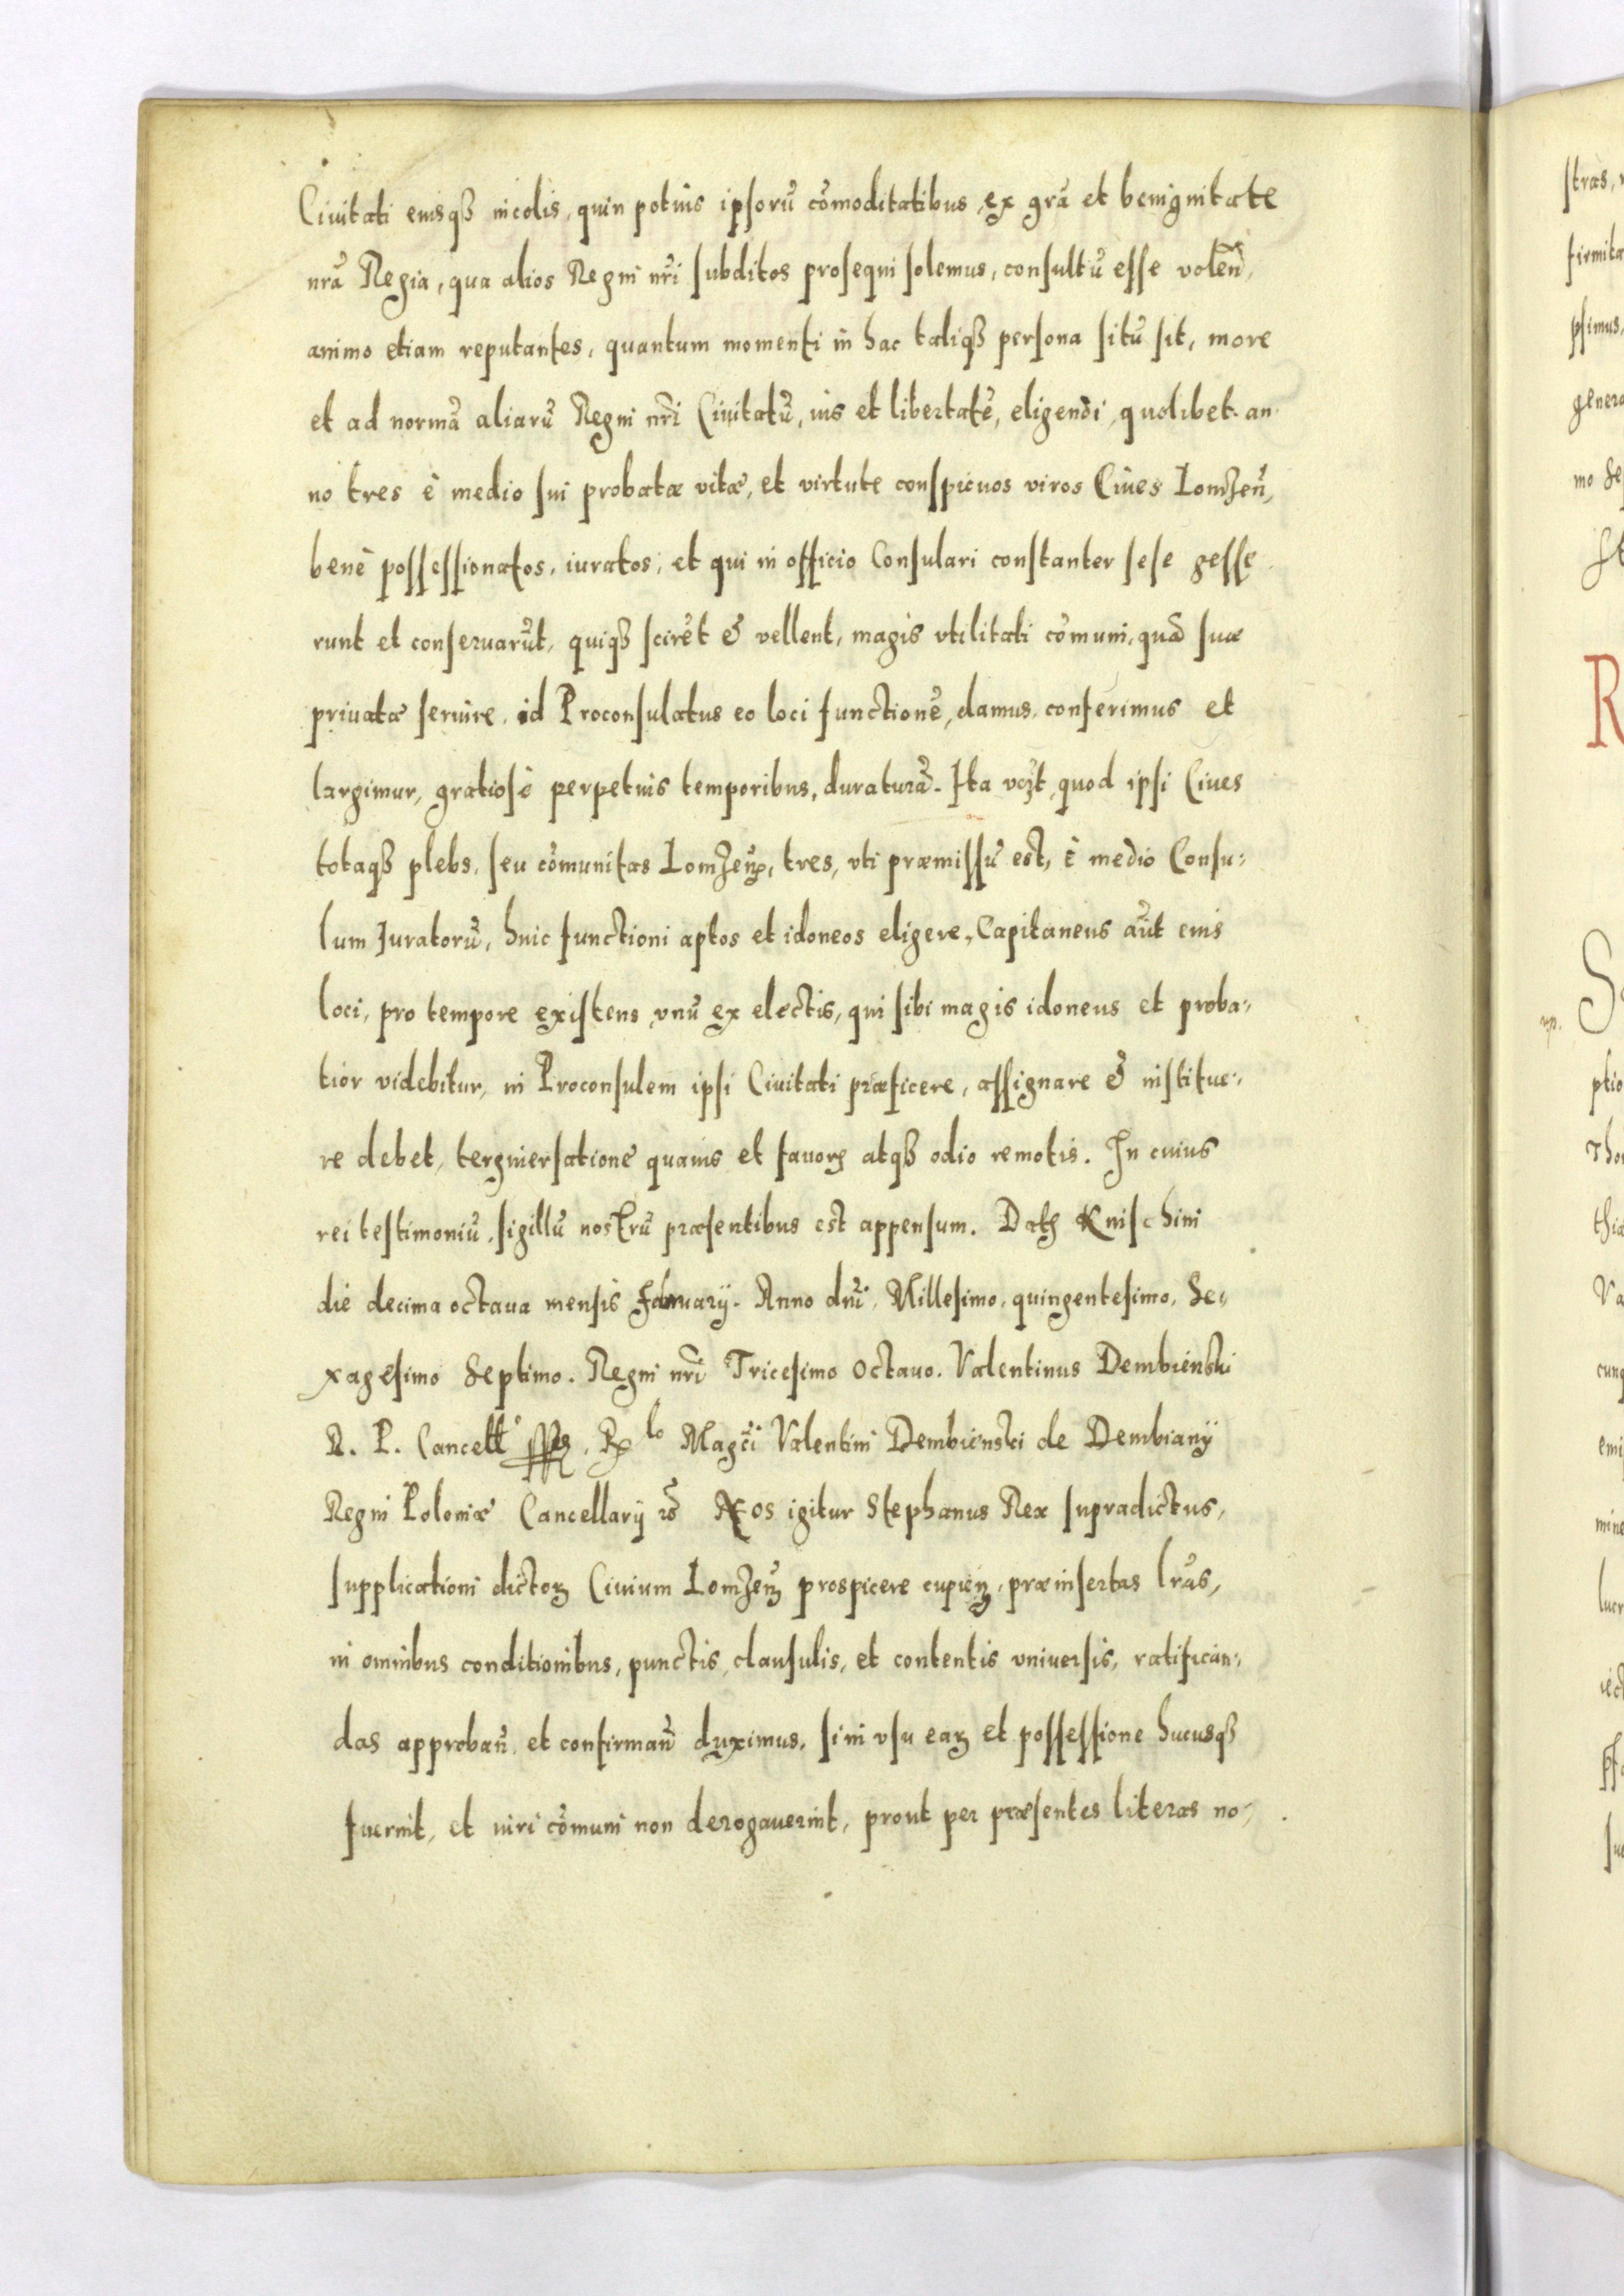 Ciuitati eiusqȝ incolis, quin potius ipsorũ cõmoditatibus, ex grã et benignitate
nrã Regia, qua alios Regni nr̃i subditos prosequi solemus, consultũ esse voleñ,
animo etiam reputantes, quantum momenti in hac taliqȝ persona sitũ sit, more
et ad normã aliarũ Regni nr̃i Ciuitatũ, ius et libertatẽ, eligendi, quolibet an
no tres è medio sui probatæ vitæ, et virtute conspicuos viros Ciues Lomzeñ,
benè possessionatos, iuratos, et qui in officio Consulari constanter sese gesse
runt et conseruarũt, quiqȝ scirẽt & vellent, magis vtilitati cõmuni, quã suæ
priuatæ seruire, id Proconsulatus eo loci functionẽ, damus, conferimus et
largimur, gratiosè perpetuis temporibus, duraturã. Ita vczt, quod ipsi Ciues
totaqȝ plebs, seu cõmunitas Lomzeñ, tres, vti præmissũ est, è medio Consu:
lum Iuratorũ, huic functioni aptos et idoneos eligere, Capitaneus aũt eius
loci, pro tempore existens, vnũ ex electis, qui sibi magis idoneus et proba:
tior videbitur, in Proconsulem ipsi Ciuitati præficere, assignare & institue:
re debet, tergiuersatione quauis et fauorꝫ atqȝ odio remotis. In cuius
rei testimoniũ, sigillũ nostrũ præsentibus est appensum. Datꝫ Knischini
die decima octaua mensis February. Anno dñi, Millesimo, quingentesimo, Se:
xagesimo Septimo. Regni nr̃i Tricesimo Octauo. Valentinus Dembienski
R. P. Cancell̃ ssp. Rlo Magci Valentini Dembienski de Dembiany
Regni Poloniæ Cancellarij &c Nos igitur Stephanus Rex supradictus,
supplicationi dictoꝝ Ciuium Lomzeñ prospicere cupieñ, præinsertas lr̃as,
in omnibus conditionibus, punctis, clausulis, et contentis vniuersis, ratifican:
das approbañ, et confirmañ duximus, si in vsu eaꝝ et possessione hucusqȝ
fuerint, et iuri cõmuni non derogauerint, prout per præsentes literas no: